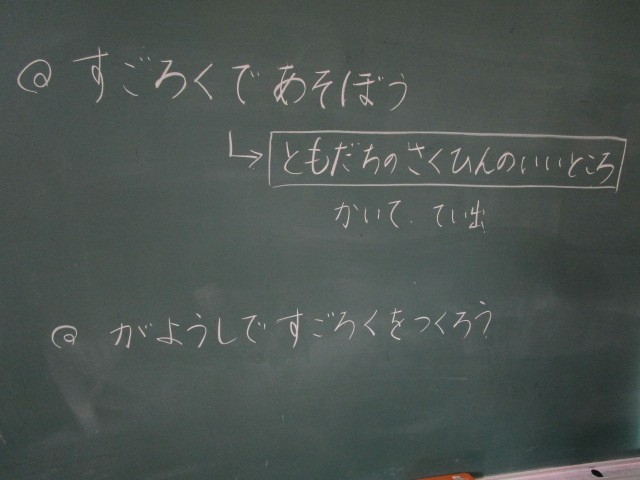 @ すごろくであそぼう
↳ ともだちのさくひんのいいところ
かいて、てい出
@ がようしですごろくをつくろう